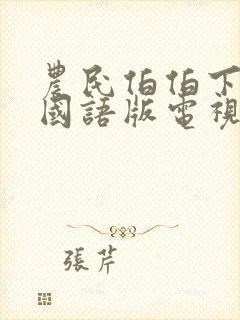 農民伯伯下
國語版電視
張芹